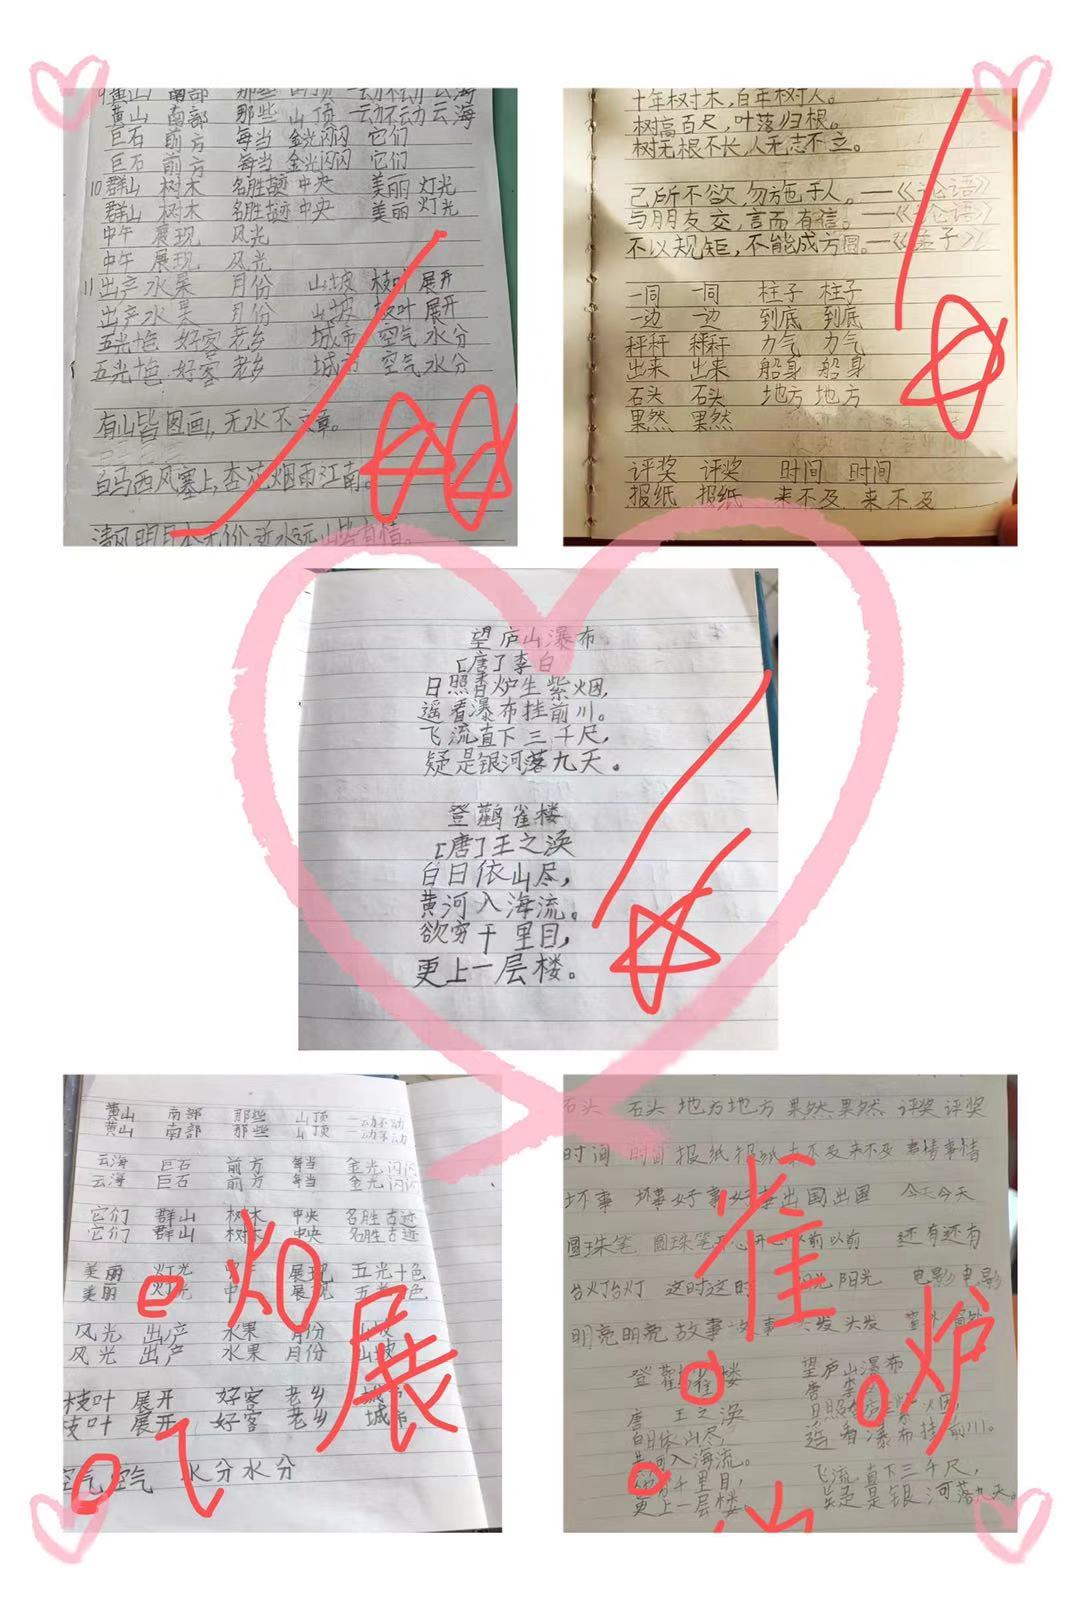 9黄山 南部 那些 山顶 一动不动 云海
黄山 南部 那些 山顶 一动不动 云海
巨石 前方 每当 金光闪闪 它们
巨石 前方 每当 金光闪闪 它们
10群山 树木 名胜古迹 中央 美丽 灯光
群山 树木 名胜古迹 中央 美丽 灯光
中午 展现 风光
中午 展现 风光
11出产 水果 月份 山坡 枝叶 展开
出产 水果 月份 山坡 枝叶 展开
五光十色 好客 老乡 城市 空气 水分
五光十色 好客 老乡 城市 空气 水分
有山皆图画,无水不文章。
白马西风塞上,杏花烟雨江南。
清风明月本无价,近水远山皆有情。
十年树木,百年树人。
树高百尺,叶落归根。
树无根不长,人无志不立。
己所不欲,勿施于人。——《论语》
与朋友交,言而有信。——《论语》
不以规矩,不能成方圆。——《孟子》
一同 一同 柱子 柱子
一边 一边 到底 到底
秤杆 秤杆 力气 力气
出来 出来 船身 船身
石头 石头 地方 地方
果然 果然
评奖 评奖 时间 时间
报纸 报纸 来不及 来不及
望庐山瀑布
[唐]李白
日照香炉生紫烟,
遥看瀑布挂前川。
飞流直下三千尺,
疑是银河落九天。
登鹳雀楼
[唐]王之涣
白日依山尽,
黄河入海流。
欲穷千里目,
更上一层楼。
黄山 南部 那些 山顶 一动不动
黄山 南部 那些 山顶 一动不动
云海 巨石 前方 每当 金光闪闪
云海 巨石 前方 每当 金光闪闪
它们 群山 树木 中央 名胜古迹
它们 群山 树木 中央 名胜古迹
美丽 灯光 中午 展现 五光十色
美丽 灯光 中午 展现 五光十色
风光 出产 水果 月份 山坡
风光 出产 水果 月份 山坡
枝叶 展开 好客 老乡 城市
枝叶 展开 好客 老乡 城市
空气 空气 水分 水分
灯
展
气
石头 石头 地方 地方 果然 果然 评奖 评奖
时间 时间 报纸 报纸 来不及 来不及 事情 事情
坏事 坏事 好事 好事 出国 出国 今天 今天
圆珠笔 圆珠笔 开心 开心 以前 以前 还有 还有
台灯 台灯 这时 这时 阳光 阳光 电影 电影
明亮 明亮 故事 故事 头发 头发 窗外 窗外
登鹳雀楼
唐 王之涣
白日依山尽,
黄河入海流。
欲穷千里目,
更上一层楼
望庐山瀑布
唐 李白
日照香炉生紫烟,
遥看瀑布挂前川。
飞流直下三千尺,
疑是银河落九天。
雀
炉